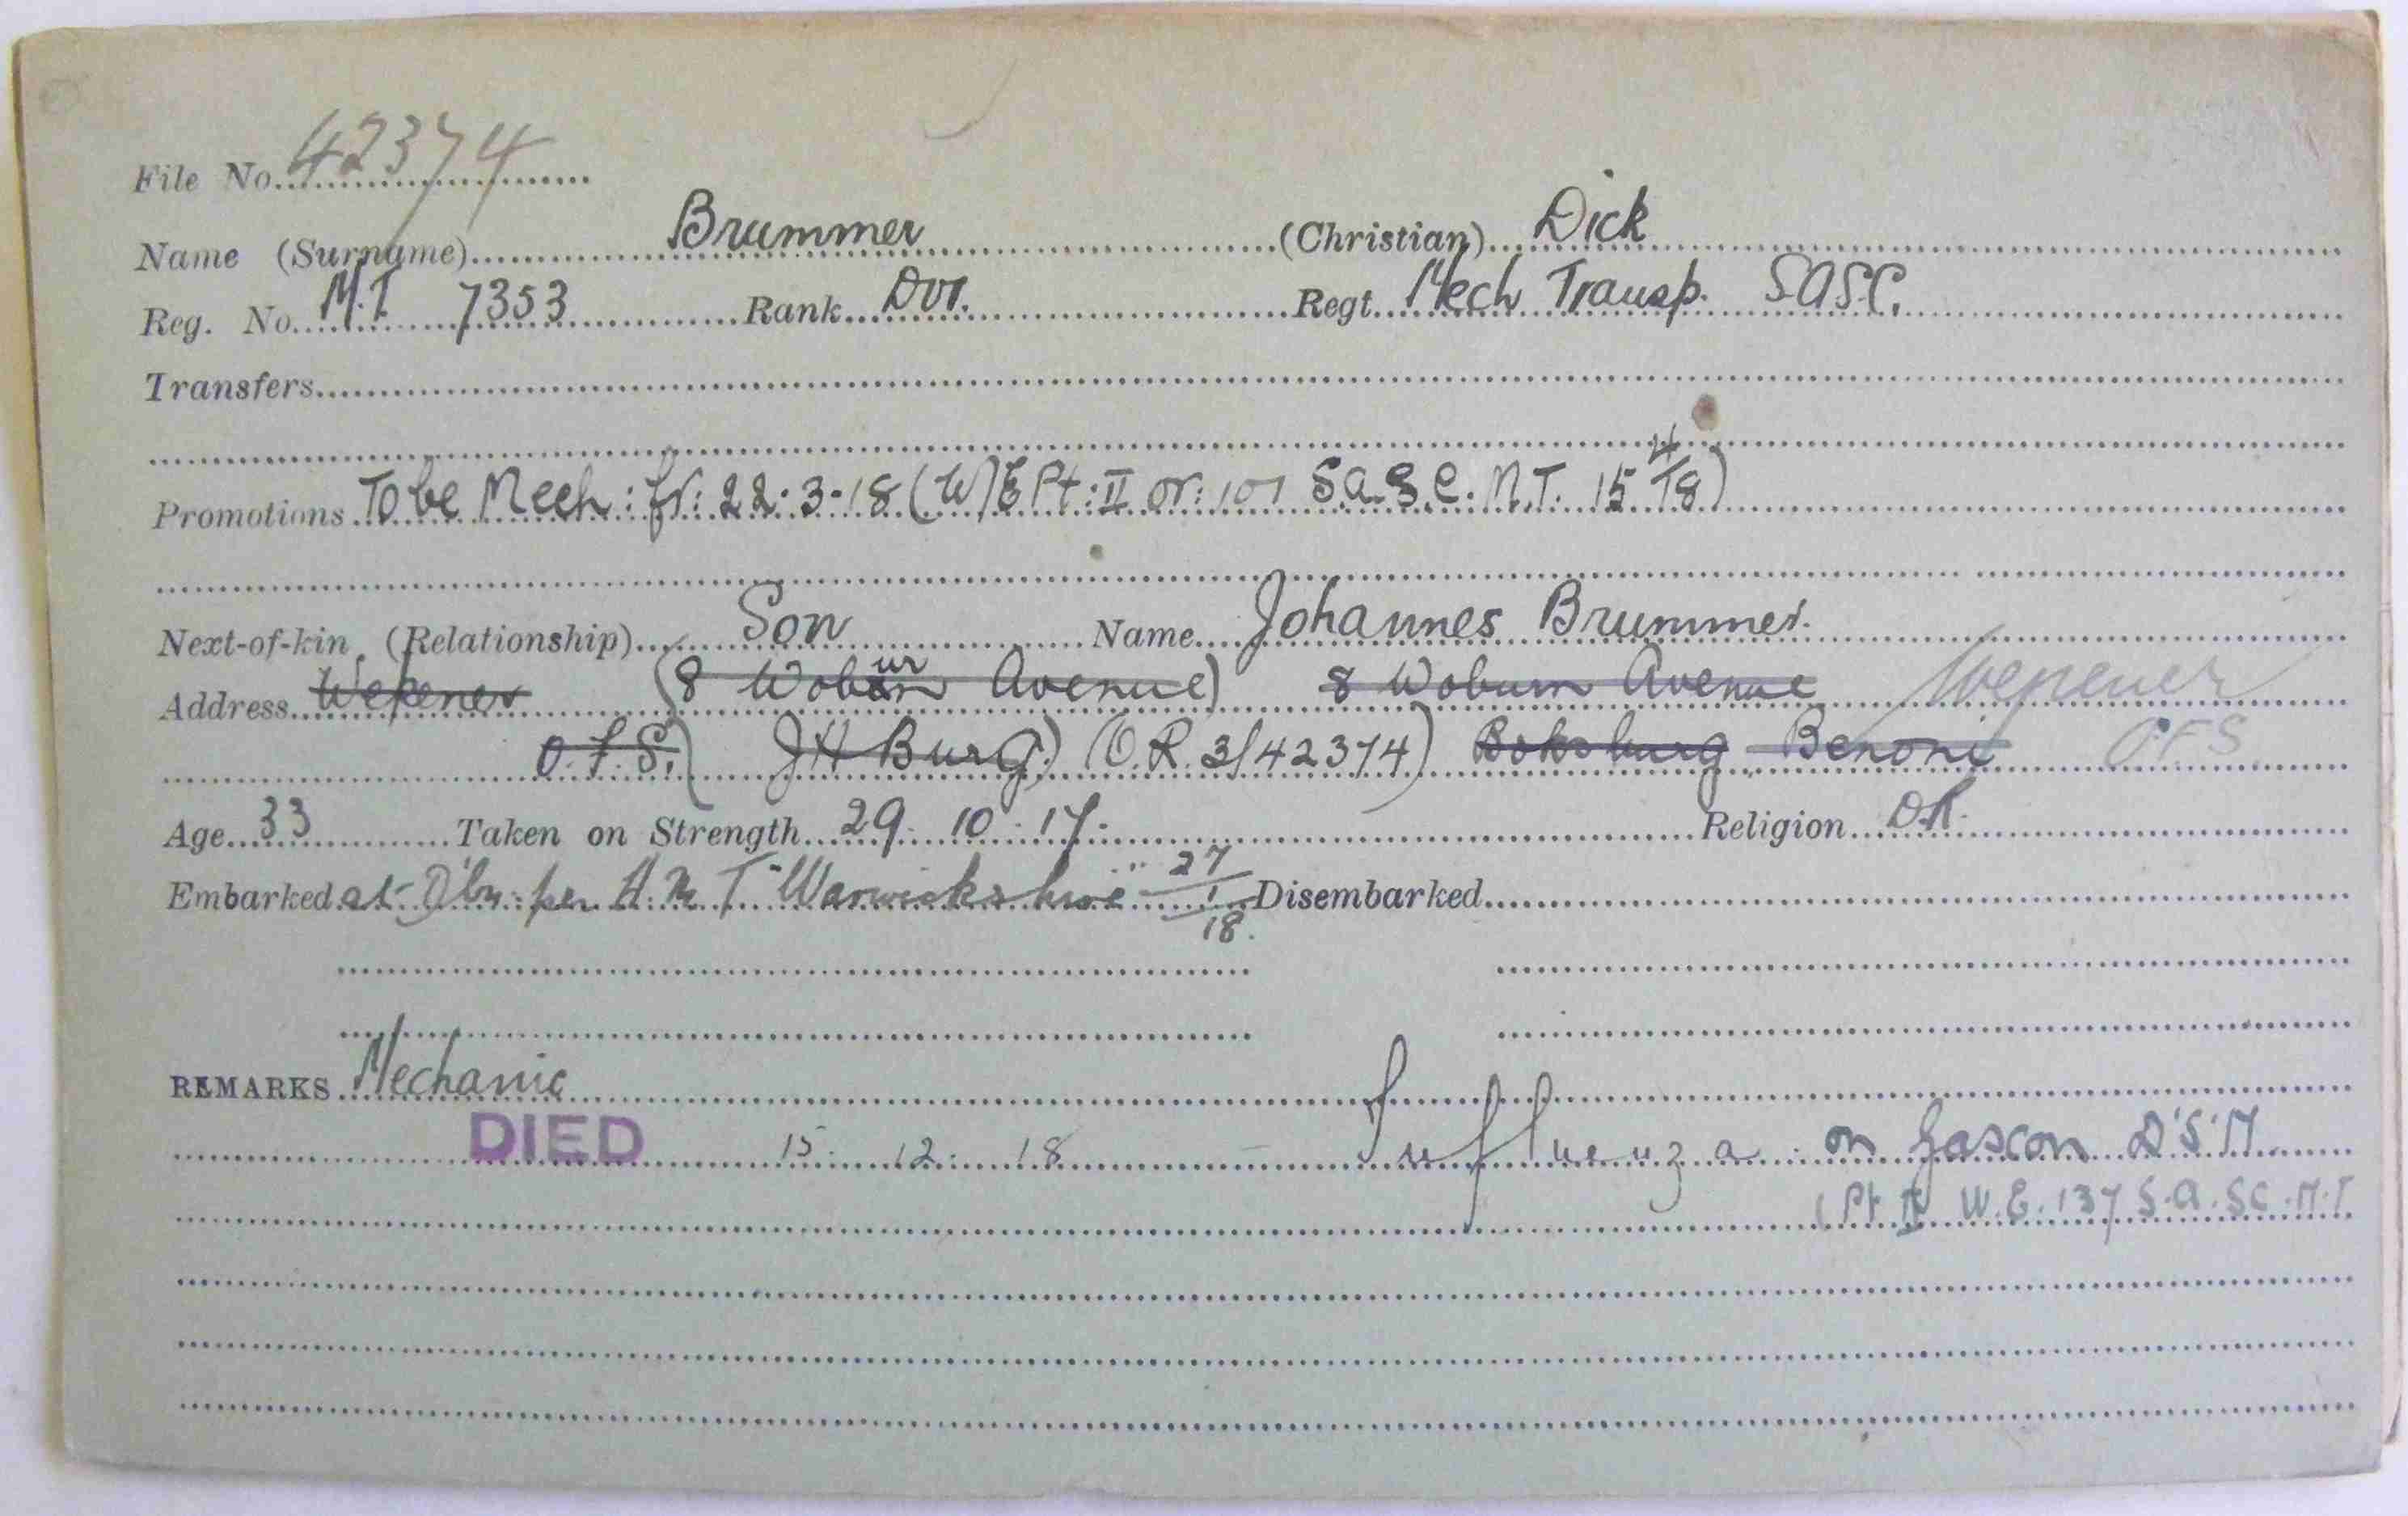 File No. 42374
Name (Surname) Brummer (Christian) Dick
Reg. No. M.T. 7353 Rank Dvr. Regt. Mech Transp. S.A.S.C.
Transfers
Promotions To be Mech: fr: 22-3-18 (W/E Pt: II or: 101 S.A.S.C. M.T. 15/4/18)
Next-of-kin (Relationship) Son Name Johannes Brummer
Address Wepener (8 Woburn Avenue) 8 Woburn Avenue Wepener
O.F.S. JHBurg) (O.R. 3/42374) Boksburg Benoni OFS
Age 33 Taken on Strength 29.10.17. Religion D.R.
Embarked at D'bn: per H.M.T. "Warwickshire" 27/1/18. Disembarked
REMARKS Mechanic
DIED 15. 12. 18 — Influenza on Gascon D'S'M
(Pt II W.E. 137 S.A.SC.M.T